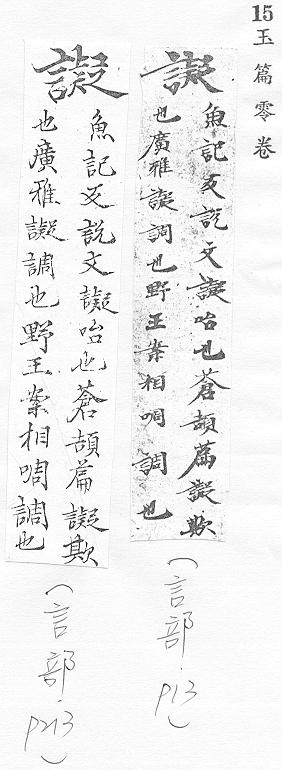 15玉篇零卷
譺
魚記反說文譺咍也蒼頡篇譺欺
也廣雅譺調也野王案相啁調也
(言部.P13)
譺
魚記反說文譺咍也蒼頡篇譺欺
也廣雅譺調也野王案相啁調也
(言部.P213)